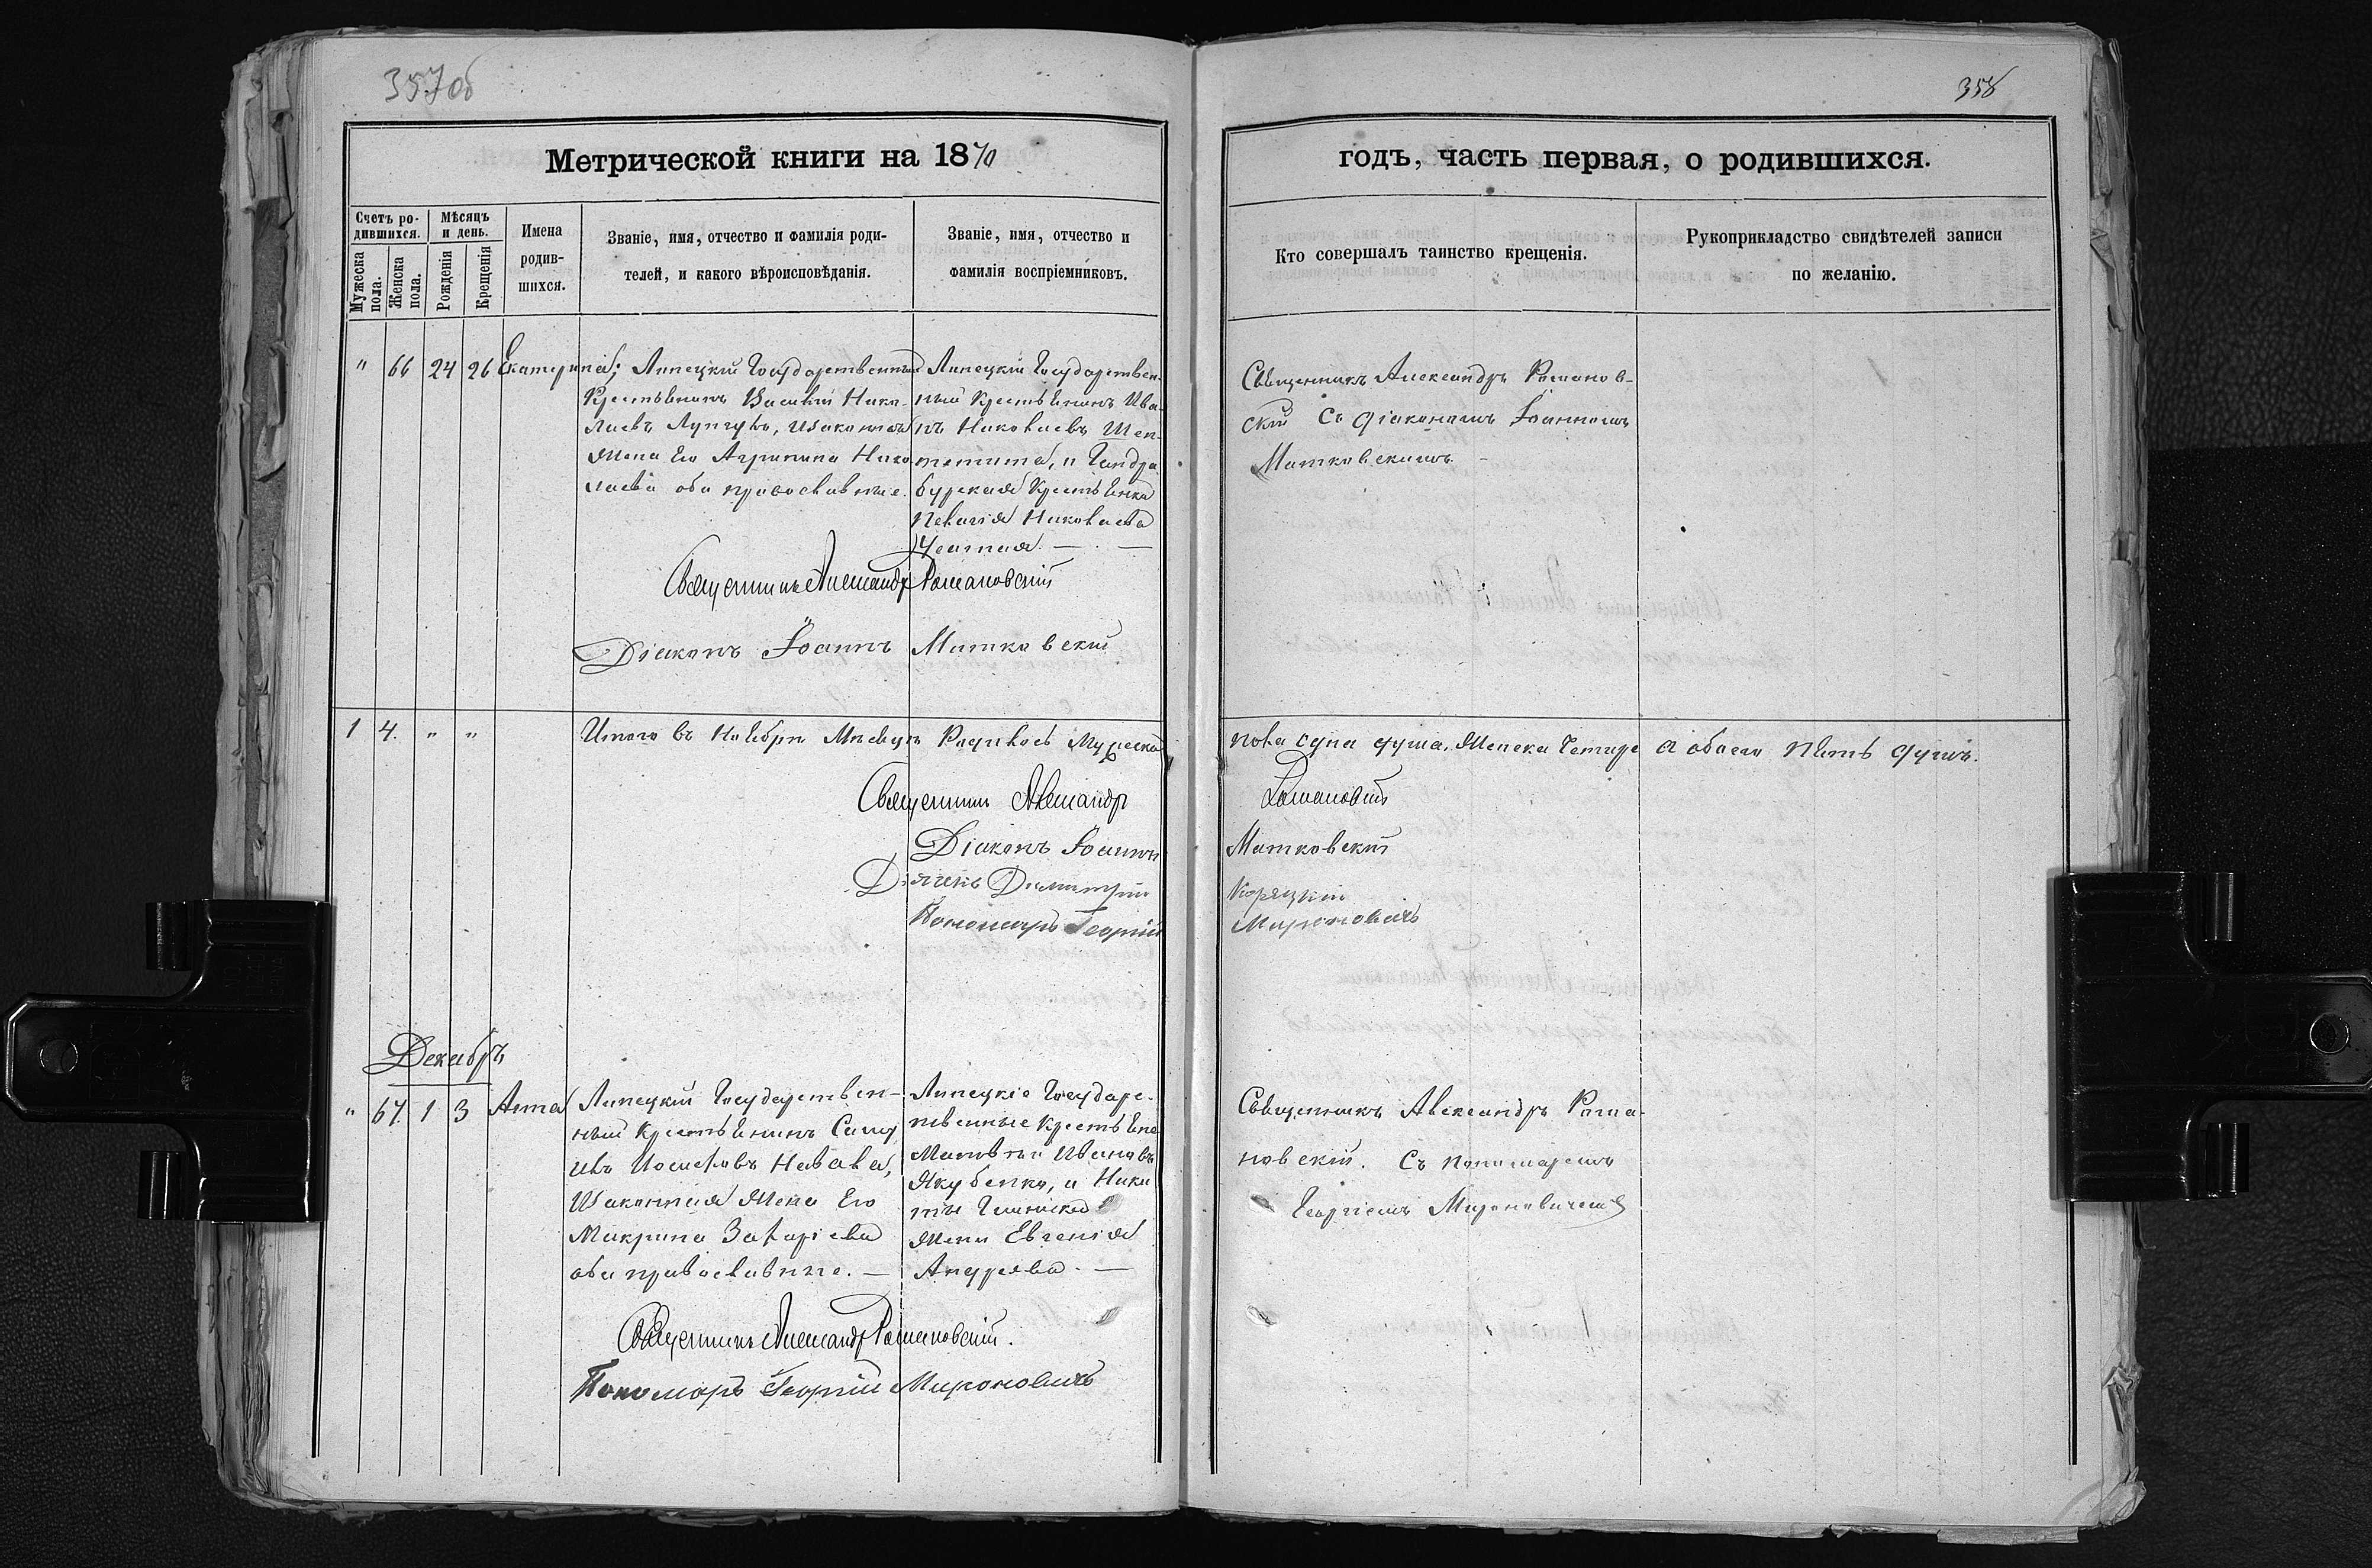 357об
358
Метрической книги на 1870
годъ, часть первая, о родившихся.
Счетъ родившихся.
Мѣсяцъ и день.
Мужеска пола.
Женска пола.
Рожденія
Крещенія
Имена родившихся.
Званіе, имя, отчество и фамилія родителей, и какого вѣроисповѣданія.
Званіе, имя, отчество и фамилія воспріемниковъ.
Кто совершалъ таинство крещенія.
Рукоприкладство свидѣтелей записи по желанію.
" 66 24 26 Екатерина;
Липецкій Государственный
Крестьянинъ Василій Нико-
лаевъ, Изаконная
Жена Его Агрипина Нико-
лаева оба православные.
Липецкій Государствен-
ный Крестьянинъ Ива-
нъ Николаевъ
и
Крестьянка
Пелагія Николаева
Священникъ Александръ Романов-
скій Съ Діакономъ Іоанномъ
Матковскимъ
Священникъ Александр Романовский
Діаконъ Іоаннъ Матковскій
1 4. " "
Итого въ Ноябрѣ Мѣсяцѣ Родилось Мужеска
пола одна душа, Женска Четыре а обоего пять душъ.
Священник Александр Романовский
Діаконъ Іоаннъ Матковскій
Дьячекъ Димитрій Корецкій
Пономаръ Георгій Мироновичъ
Декабрь
" 67. 1 3 Анна
Липецкій Государствен-
ный Крестьянинъ Саму
илъ Іосифовъ
Изаконная Жена Его
Макрина Захаріева
оба православные.
Липецкіе Государс-
твенные Крестьяне
Ивановъ
Якубенко, и Ники
ты
Жена Евгенія
Андреева.
Священникъ Александръ Рома-
новскій. Съ пономаремъ
Георгіемъ Мироновичемъ
Священникъ Александр Романовский.
Пономаръ Георгій Мироновичъ